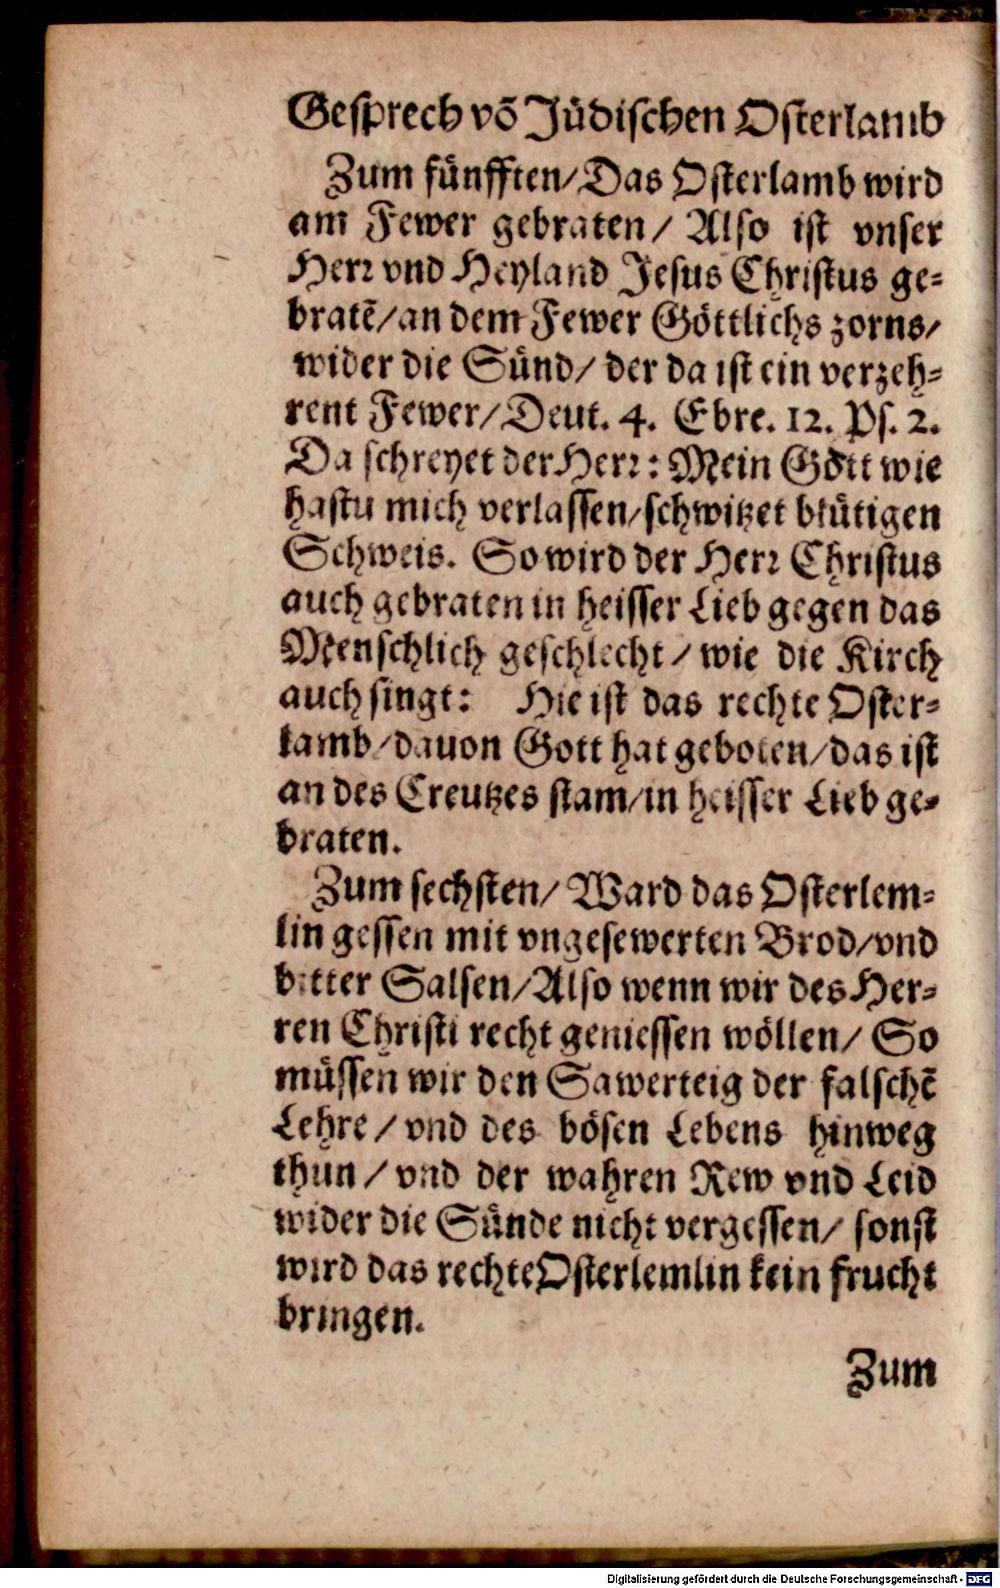 Gesprech võ Jüdischen Osterlamb
Zum fünfften/ Das Osterlamb wird
am Fewer gebraten/ Also ist vnser
Herr vnd Heyland Jesus Christus ge-
bratẽ/ an dem Fewer Göttlichs zorns/
wider die Sünd/ der da ist ein verzeh-
rent Fewer/ Deut. 4. Ebre. 12. Ps. 2.
Da schreyet der Herr: Mein Gott wie
hastu mich verlassen/ schwitzet blütigen
Schweis. So wird der Herr Christus
auch gebraten in heisser Lieb gegen das
Menschlich geschlecht/ wie die Kirch
auch singt: Hie ist das rechte Oster-
lamb/ dauon Gott hat geboten/ das ist
an des Creutzes stam/ in heisser Lieb ge-
braten.
Zum sechsten/ Ward das Osterlem-
lin gessen mit vngesewerten Brod/ vnd
bitter Salsen/ Also wenn wir des Her-
ren Christi recht geniessen wöllen/ So
müssen wir den Sawerteig der falschẽ
Lehre/ vnd des bösen Lebens hinweg
thun/ vnd der wahren Rew vnd Leid
wider die Sünde nicht vergessen/ sonst
wird das rechte Osterlemlin kein frucht
bringen.
Zum
Digitalisierung gefördert durch die Deutsche Forschungsgemeinschaft - DFG